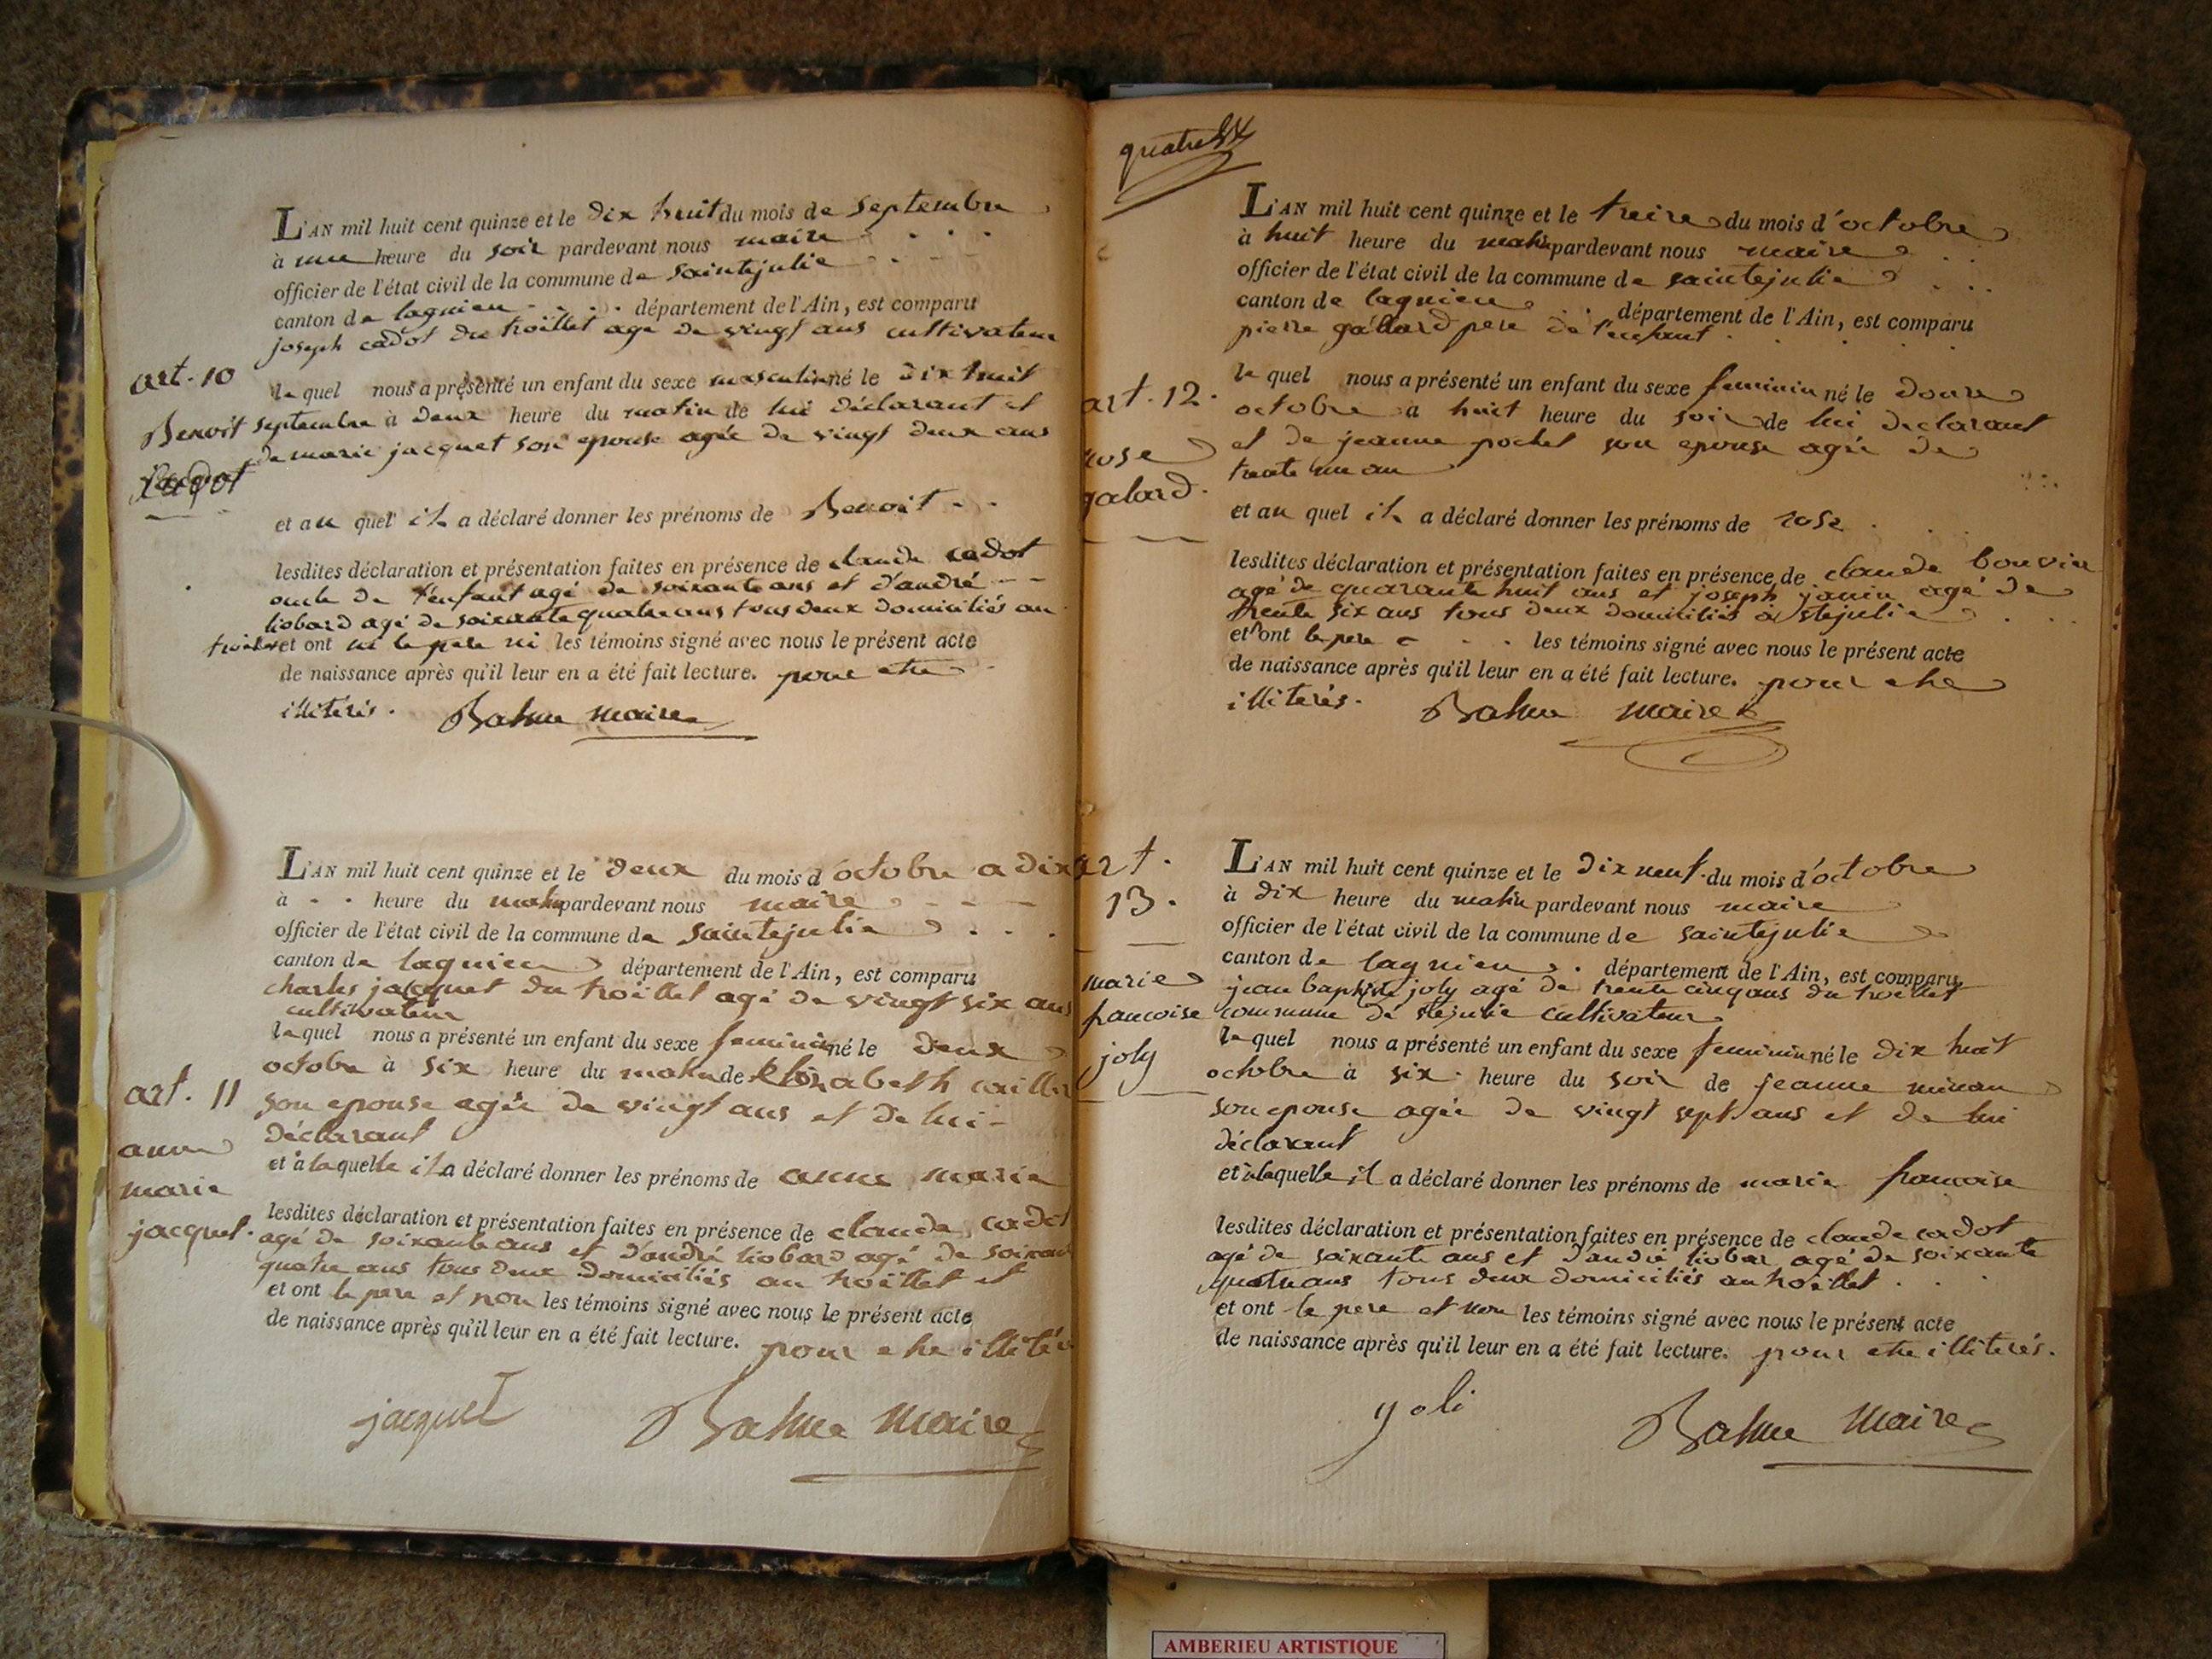 L'AN mil huit cent quinze et le dix huit du mois de septembre
à une heure du soir pardevant nous maire
officier de l'état civil de la commune de saintejulie
canton de lagnieu département de l'Ain, est comparu
joseph cadot du troillet agé de vingt ans cultivateur
art. 10
le quel nous a présenté un enfant du sexe masculin né le dix huit
Benoit
septembre à deux heure du matin de lui déclarant et
de marie jacquet son epouse agée de vingt deux ans
Cadot
et au quel il a déclaré donner les prénoms de Benoit
lesdites déclaration et présentation faites en présence de claude cadot
oncle de l'enfant agé de soixante ans et d'andré
liobard agé de soixante quatre ans tous deux domiciliés au
troillet et ont ni le pere ni les témoins signé avec nous le présent acte
de naissance après qu'il leur en a été fait lecture. pour etre
illiterés. Bahue maire
L'AN mil huit cent quinze et le deux du mois d'octobre a dix
à heure du matin pardevant nous maire
officier de l'état civil de la commune de saintejulie
canton de lagnieu département de l'Ain, est comparu
charles jacquet du troillet agé de vingt six ans
cultivateur
le quel nous a présenté un enfant du sexe feminin né le deux
octobre à six heure du matin de
art. 11
son epouse agée de vingt ans et de lui
déclarant
anne
et à laquelle il a déclaré donner les prénoms de anne marie
marie
jacquet.
lesdites déclaration et présentation faites en présence de claude cadot
agé de soixante ans et d'andré liobard agé de soixante
quatre ans tous deux domiciliés au troillet et
et ont le pere et non les témoins signé avec nous le présent acte
de naissance après qu'il leur en a été fait lecture. pour etre illiterés
jacquet Bahue maire
L'AN mil huit cent quinze et le treize du mois d'octobre
à huit heure du matin pardevant nous maire
officier de l'état civil de la commune de saintejulie
canton de lagnieu département de l'Ain, est comparu
pierre gabard pere de l'enfant
art. 12.
le quel nous a présenté un enfant du sexe feminin né le douze
octobre à huit heure du soir de lui declarant
rose
et de jeanne pochet son epouse agée de
trente un an
gabard.
et au quel il a déclaré donner les prénoms de rose
lesdites déclaration et présentation faites en présence de claude bouvier
agé de quarante huit ans et joseph janin agé de
trente six ans tous deux domiciliés à stejulie
et ont le pere les témoins signé avec nous le présent acte
de naissance après qu'il leur en a été fait lecture. pour etre
illiterés. Bahue maire
art.
13.
L'AN mil huit cent quinze et le dix neuf du mois d'octobre
à dix heure du matin pardevant nous maire
officier de l'état civil de la commune de saintejulie
canton de lagnieu département de l'Ain, est comparu
marie
jean baptiste joly agé de trente cinq ans du troillet
francoise
commune de stejulie cultivateur
joly
le quel nous a présenté un enfant du sexe feminin né le dix huit
octobre à six heure du soir de jeanne
son epouse agée de vingt sept ans et de lui
déclarant
et à laquelle il a déclaré donner les prénoms de marie francoise
lesdites déclaration et présentation faites en présence de claude cadot
agé de soixante ans et d'andré liobar agé de soixante
quatre ans tous deux domiciliés au troillet
et ont le pere et non les témoins signé avec nous le présent acte
de naissance après qu'il leur en a été fait lecture. pour etre illiterés.
yoli Bahue maire
AMBERIEU ARTISTIQUE